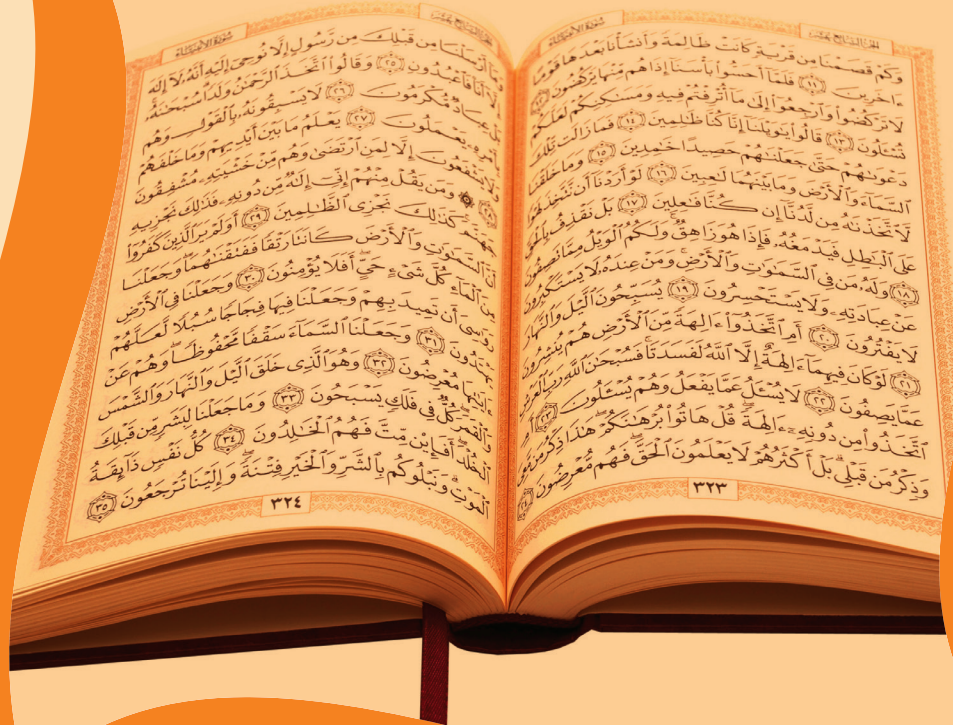 الجزء السابع عشر سورة الأنبياء
وَكَمْ قَصَمْنَا مِن قَرْيَةٍ كَانَتْ ظَالِمَةً وَأَنشَأْنَا بَعْدَهَا قَوْمًا
ءَاخَرِينَ ١١ فَلَمَّآ أَحَسُّوا۟ بَأْسَنَآ إِذَا هُم مِّنْهَا يَرْكُضُونَ ١٢
لَا تَرْكُضُوا۟ وَٱرْجِعُوٓا۟ إِلَىٰ مَآ أُتْرِفْتُمْ فِيهِ وَمَسَٰكِنِكُمْ لَعَلَّكُمْ
تُسْـَٔلُونَ ١٣ قَالُوا۟ يَٰوَيْلَنَآ إِنَّا كُنَّا ظَٰلِمِينَ ١٤ فَمَا زَالَت تِّلْكَ
دَعْوَىٰهُمْ حَتَّىٰ جَعَلْنَٰهُمْ حَصِيدًا خَٰمِدِينَ ١٥ وَمَا خَلَقْنَا
ٱلسَّمَآءَ وَٱلْأَرْضَ وَمَا بَيْنَهُمَا لَٰعِبِينَ ١٦ لَوْ أَرَدْنَآ أَن نَّتَّخِذَ لَهْوًا
لَّٱتَّخَذْنَٰهُ مِن لَّدُنَّآ إِن كُنَّا فَٰعِلِينَ ١٧ بَلْ نَقْذِفُ بِٱلْحَقِّ
عَلَى ٱلْبَٰطِلِ فَيَدْمَغُهُۥ فَإِذَا هُوَ زَاهِقٌ ۚ وَلَكُمُ ٱلْوَيْلُ مِمَّا تَصِفُونَ
١٨ وَلَهُۥ مَن فِى ٱلسَّمَٰوَٰتِ وَٱلْأَرْضِ ۚ وَمَنْ عِندَهُۥ لَا يَسْتَكْبِرُونَ
عَنْ عِبَادَتِهِۦ وَلَا يَسْتَحْسِرُونَ ١٩ يُسَبِّحُونَ ٱلَّيْلَ وَٱلنَّهَارَ
لَا يَفْتُرُونَ ٢٠ أَمِ ٱتَّخَذُوٓا۟ ءَالِهَةً مِّنَ ٱلْأَرْضِ هُمْ يُنشِرُونَ
٢١ لَوْ كَانَ فِيهِمَآ ءَالِهَةٌ إِلَّا ٱللَّهُ لَفَسَدَتَا ۚ فَسُبْحَٰنَ ٱللَّهِ رَبِّ ٱلْعَرْشِ
عَمَّا يَصِفُونَ ٢٢ لَا يُسْـَٔلُ عَمَّا يَفْعَلُ وَهُمْ يُسْـَٔلُونَ ٢٣ أَمِ
ٱتَّخَذُوا۟ مِن دُونِهِۦٓ ءَالِهَةً ۖ قُلْ هَاتُوا۟ بُرْهَٰنَكُمْ ۖ هَٰذَا ذِكْرُ مَن مَّعِىَ
وَذِكْرُ مَن قَبْلِى ۗ بَلْ أَكْثَرُهُمْ لَا يَعْلَمُونَ ٱلْحَقَّ ۖ فَهُم مُّعْرِضُونَ ٢٤
٣٢٣
الجزء السابع عشر سورة الأنبياء
وَمَآ أَرْسَلْنَا مِن قَبْلِكَ مِن رَّسُولٍ إِلَّا نُوحِىٓ إِلَيْهِ أَنَّهُۥ لَآ إِلَٰهَ
إِلَّآ أَنَا۠ فَٱعْبُدُونِ ٢٥ وَقَالُوا۟ ٱتَّخَذَ ٱلرَّحْمَٰنُ وَلَدًا ۗ سُبْحَٰنَهُۥ ۚ
بَلْ عِبَادٌ مُّكْرَمُونَ ٢٦ لَا يَسْبِقُونَهُۥ بِٱلْقَوْلِ وَهُم
بِأَمْرِهِۦ يَعْمَلُونَ ٢٧ يَعْلَمُ مَا بَيْنَ أَيْدِيهِمْ وَمَا خَلْفَهُمْ
وَلَا يَشْفَعُونَ إِلَّا لِمَنِ ٱرْتَضَىٰ وَهُم مِّنْ خَشْيَتِهِۦ مُشْفِقُونَ
٢٨ ۞ وَمَن يَقُلْ مِنْهُمْ إِنِّىٓ إِلَٰهٌ مِّن دُونِهِۦ فَذَٰلِكَ نَجْزِيهِ
جَهَنَّمَ ۚ كَذَٰلِكَ نَجْزِى ٱلظَّٰلِمِينَ ٢٩ أَوَلَمْ يَرَ ٱلَّذِينَ كَفَرُوٓا۟
أَنَّ ٱلسَّمَٰوَٰتِ وَٱلْأَرْضَ كَانَتَا رَتْقًا فَفَتَقْنَٰهُمَا ۖ وَجَعَلْنَا
مِنَ ٱلْمَآءِ كُلَّ شَىْءٍ حَىٍّ ۖ أَفَلَا يُؤْمِنُونَ ٣٠ وَجَعَلْنَا فِى ٱلْأَرْضِ
رَوَٰسِىَ أَن تَمِيدَ بِهِمْ وَجَعَلْنَا فِيهَا فِجَاجًا سُبُلًا لَّعَلَّهُمْ
يَهْتَدُونَ ٣١ وَجَعَلْنَا ٱلسَّمَآءَ سَقْفًا مَّحْفُوظًا ۖ وَهُمْ عَنْ
ءَايَٰتِهَا مُعْرِضُونَ ٣٢ وَهُوَ ٱلَّذِى خَلَقَ ٱلَّيْلَ وَٱلنَّهَارَ وَٱلشَّمْسَ
وَٱلْقَمَرَ ۖ كُلٌّ فِى فَلَكٍ يَسْبَحُونَ ٣٣ وَمَا جَعَلْنَا لِبَشَرٍ مِّن قَبْلِكَ
ٱلْخُلْدَ ۖ أَفَإِي۟ن مِّتَّ فَهُمُ ٱلْخَٰلِدُونَ ٣٤ كُلُّ نَفْسٍ ذَآئِقَةُ
ٱلْمَوْتِ ۗ وَنَبْلُوكُم بِٱلشَّرِّ وَٱلْخَيْرِ فِتْنَةً ۖ وَإِلَيْنَا تُرْجَعُونَ ٣٥
٣٢٤